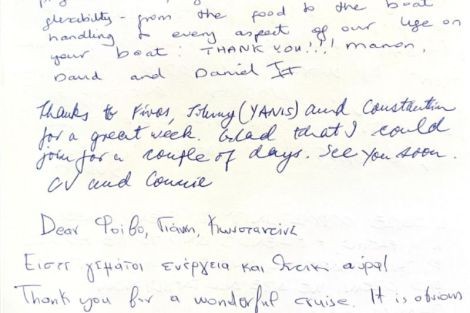 flexibility - from the food to the boat
handling & every aspect of our life on
your boat: THANK YOU!!! Manon,
David and Daniel
Thanks to Fivos, Johnny (YANIS) and Constantin
for a great week. Glad that I could
join for a couple of days. See you soon.
CV and Connie
Dear Φοίβο, Γιάννη, Κωνσταντίνε
Είστε γεμάτοι ενέργεια και θετική αύρα!
Thank you for a wonderful cruise. It is obvious